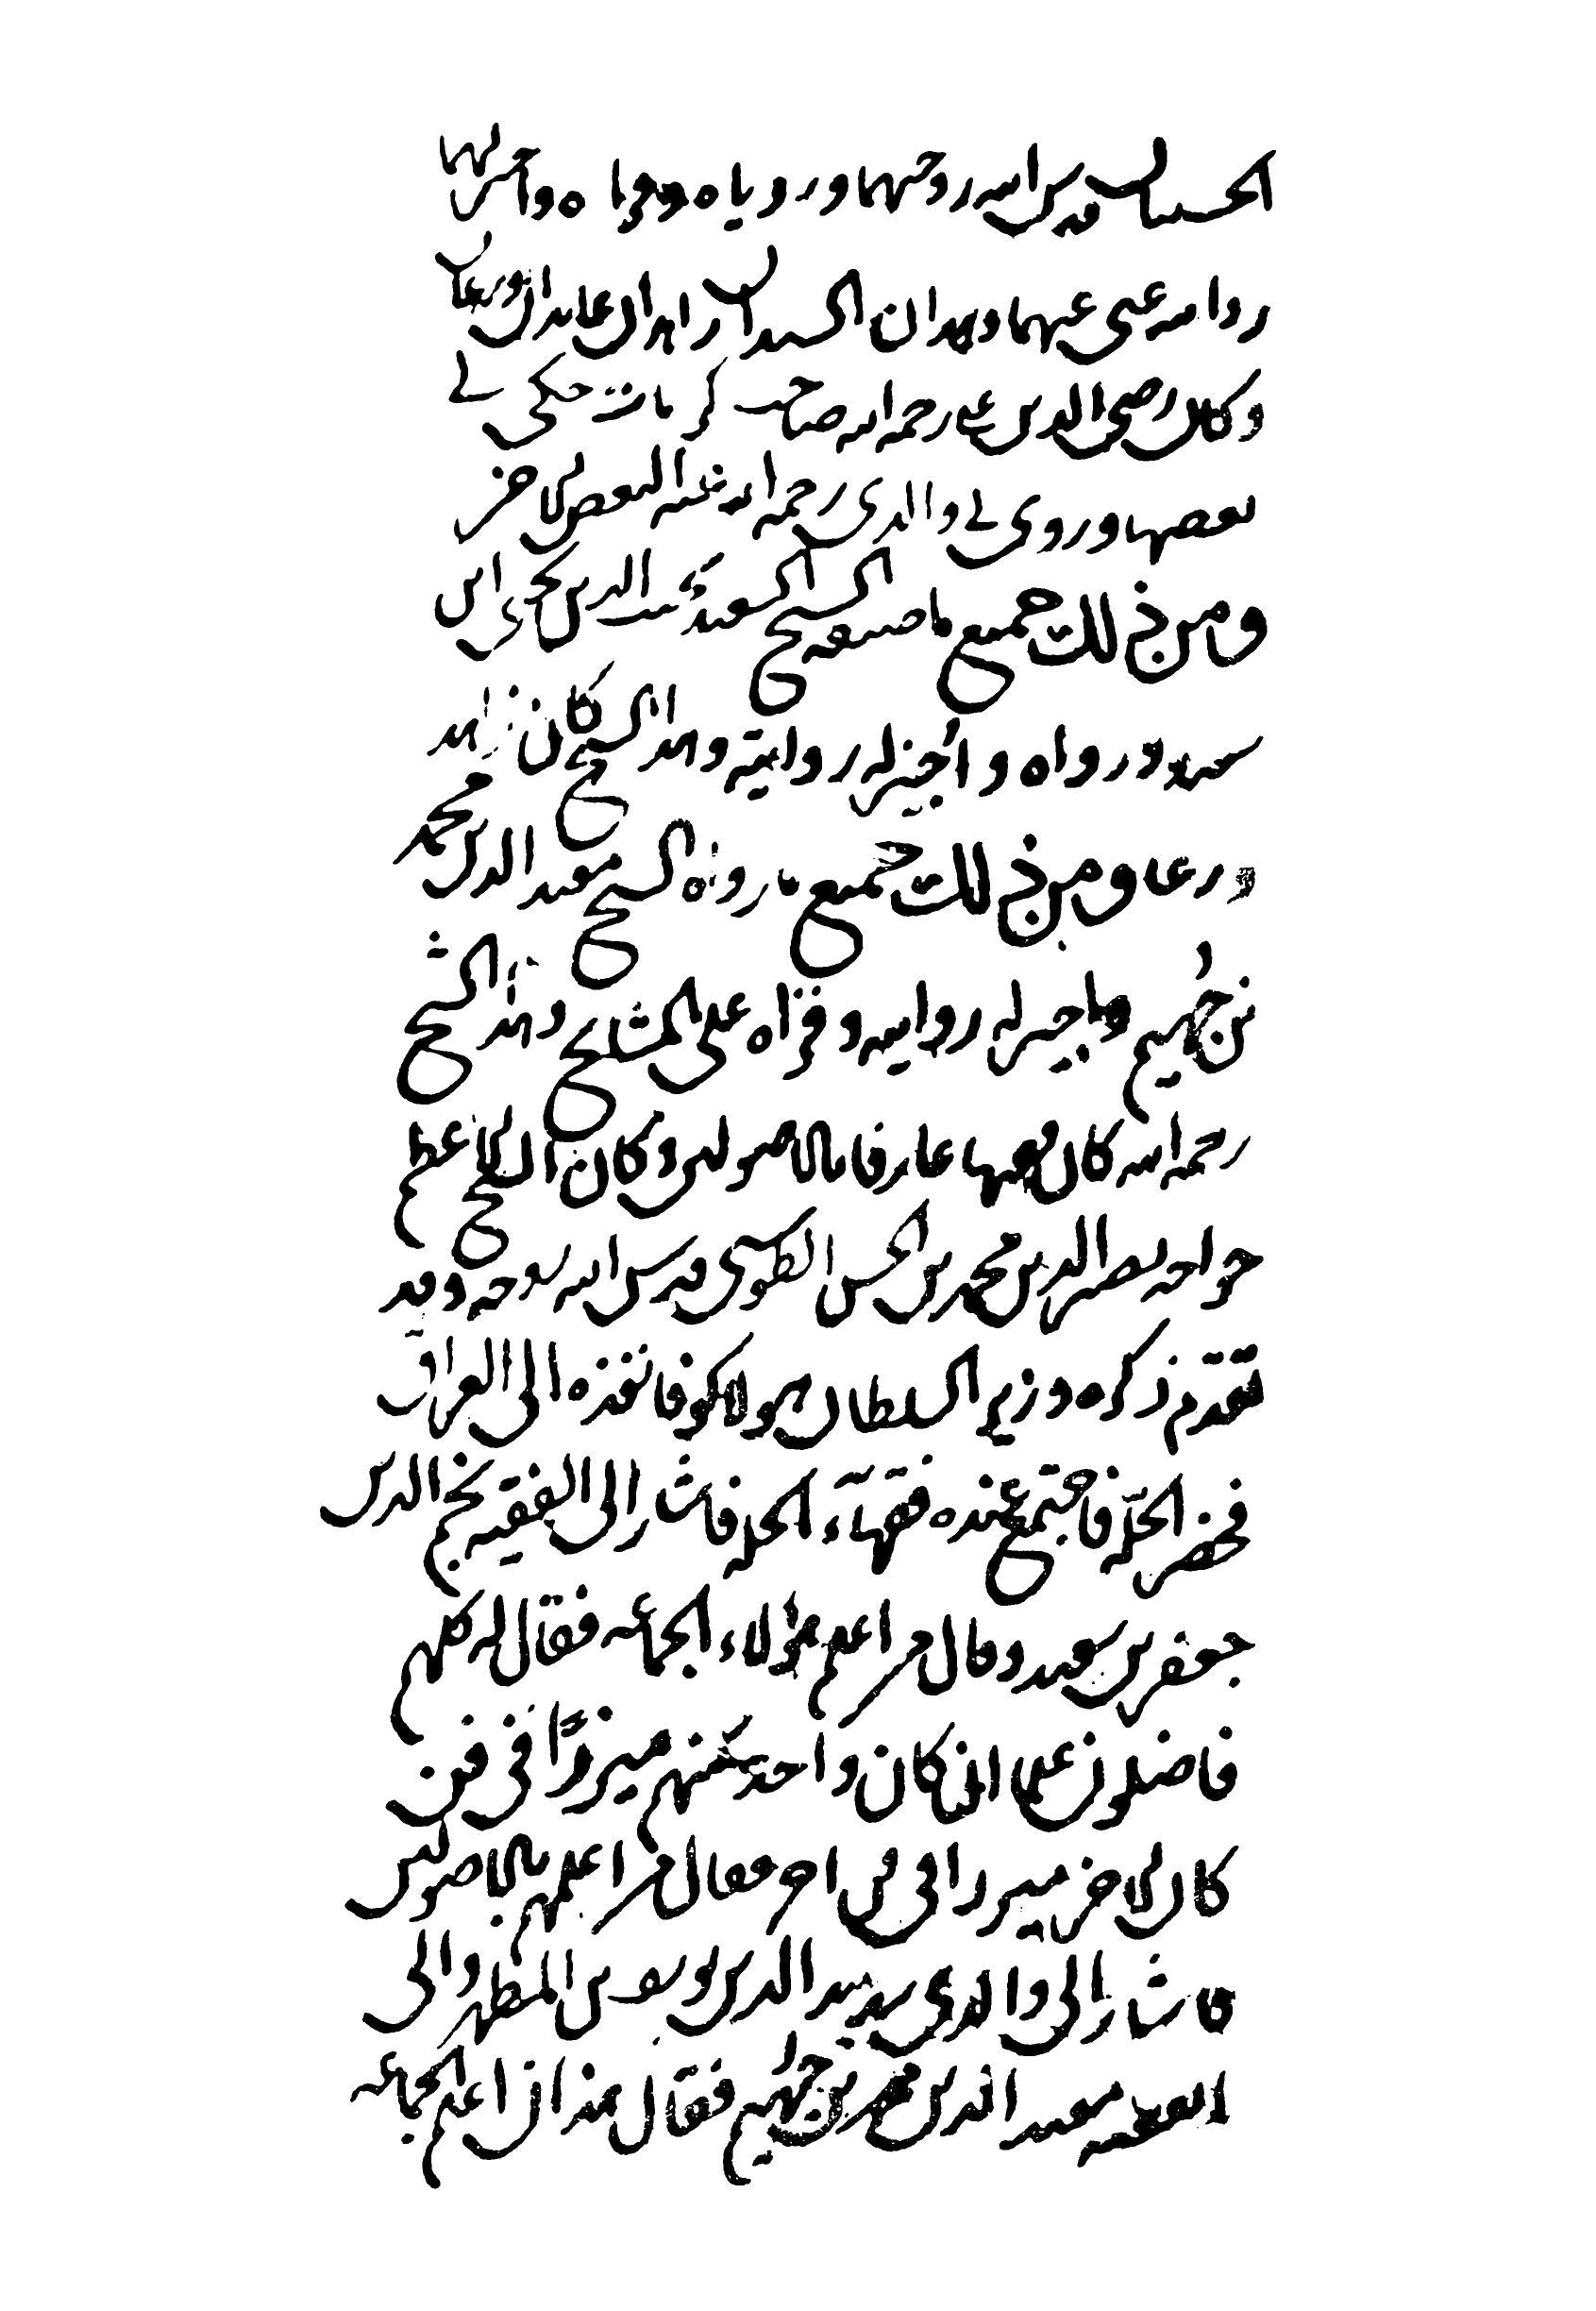 الحسنيان قدس الله روحهما ورویاه وقرأاه وأجيز لهما
روايته عني عنهما وهذان السيدان زاهدان عابدان ورعان
وكان رضى الدين على رحمه الله صاحب كرامات حكى لے
بعضها وروى لے والدى رحمه الله عنه البعض الاخر
ومن ذلك جميع ما صنفه الشيخ السعيد نجيب الدين يحيى ابن
سعيد ورواه وأجيز له روايته وهذا الشيخ كان زاهد
ورعا ومن ذلك جميع ما رواه الشيخ مفيد الدين محمد
بن جُهيم وما اجيز له روايته وقرأه على المشايخ وهذا الشيخ
رحمه الله كان فقيها عارفا بالاصولين وكان الشيخ الاعظم
خواجه نصير الدين محمد بن الحسن الطوسى قدس الله روحه وقد
تقدم ذكره وزير السلطان هولاكو فانفذه الى العراق
فحضر الحلّة فاجتمع عنده فقهاء الحلة فاشار الى الفقيه نجم الدين
جعفر بن سعيد وقال من اعلم هؤلاء الجماعه فقال له كلهم
فاضلون علماء ان كان واحد منهم مبرزًا فى فن
كان الاخر مبرزا فى فن اخر فقال من اعلمهم بالاصولين
فاشار الى والدى سديد الدين يوسف بن المطهر والى
الفقيه مفيد الدين محمد بن جُهيم فقال هذان اعلم الجماعه